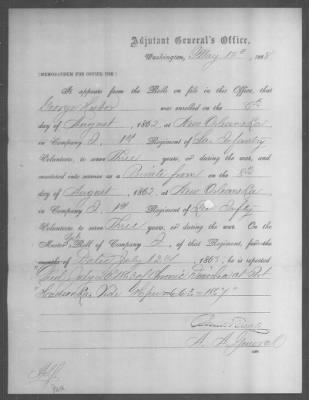 Adjutant General's Office,
Washington, May 12th, 1868
[MEMORANDUM FOR OFFICE USE.]
It appears from the Rolls on file in this Office, that
George was enrolled on the 8th
day of August, 1862, at New Orleans La
in Company I, 1st Regiment of La. Infantry
Volunteers, to serve Three years, or during the war, and
mustered into service as a Private from on the 8th
day of August, 1862, at New Orleans La
in Company I, 1st Regiment of La Infty
Volunteers, to serve Three years, or during the war. On the
Muster Roll of Company I, of that Regiment, for the
months of dated July 12th, 1865, he is reported
"Died July 1863 of Chronic Diarrhea at Port
Hudson La.
A. A. General